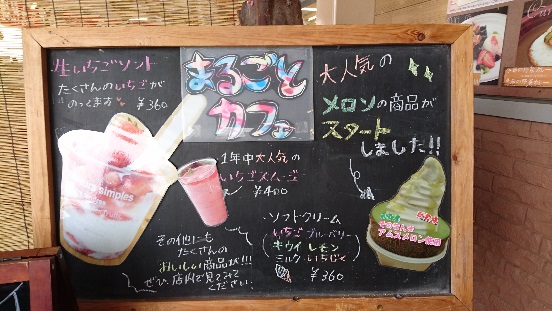 生いちごソフト
たくさんのいちごが
のってます
¥360
まるごと
カフェ
大人気の
メロンの商品が
スタート
しました!!
1年中大人気の
いちごスムージー
¥400
ソフトクリーム
いちご ブルーベリー
キウイ レモン
ミルク いちじく
¥360
その他にも
たくさんの
おいしい商品が!!!
ぜひ、店内で見てみて
ください。
アムスメロン